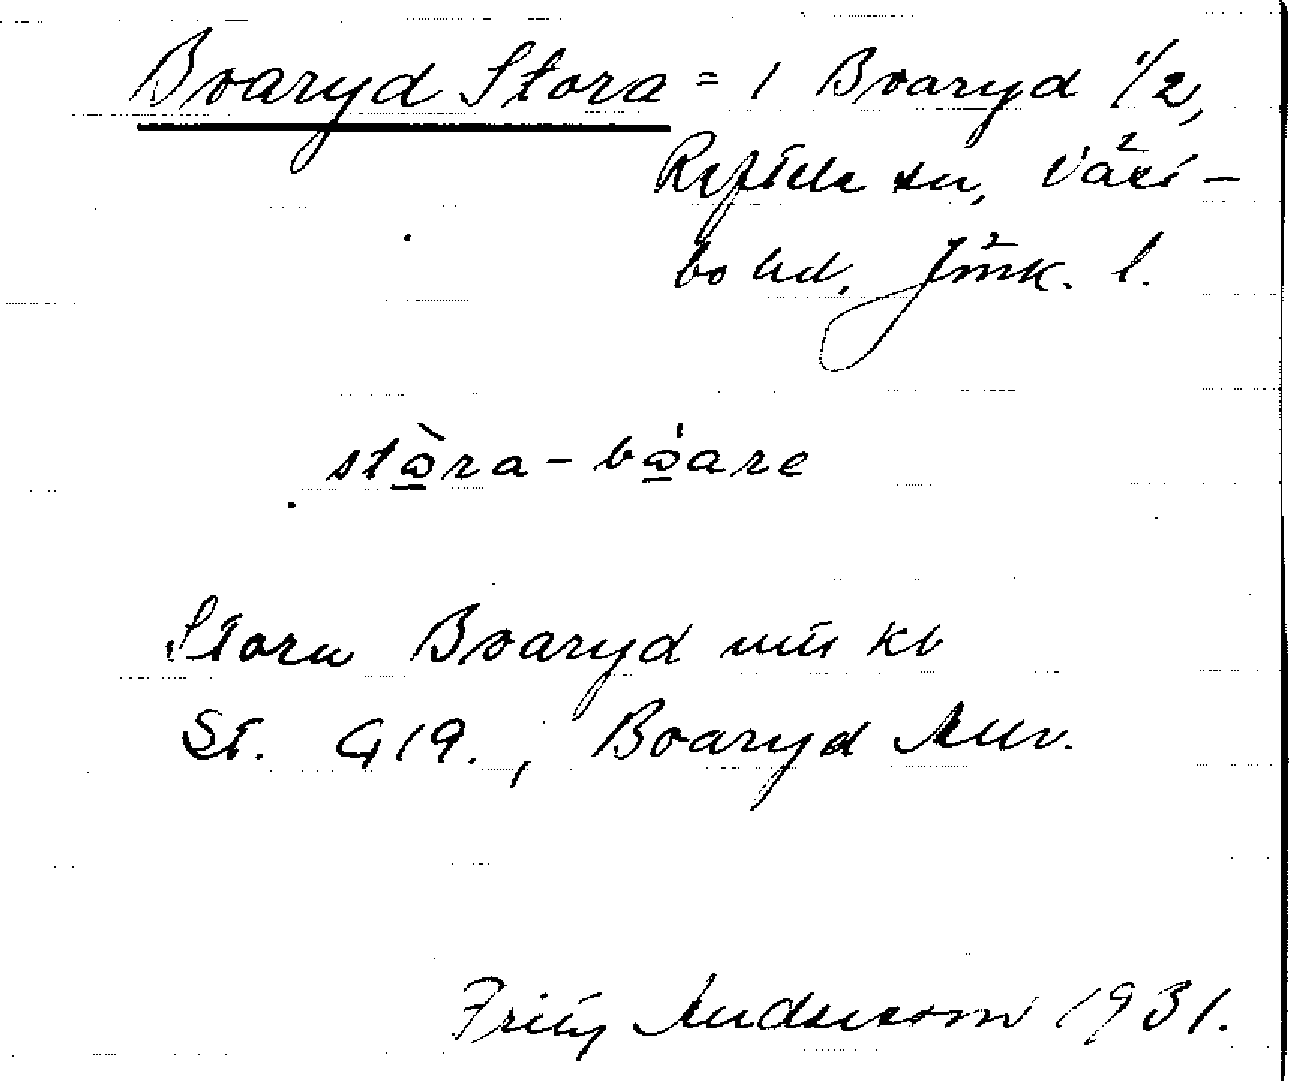 Boaryd Stora = 1 Boaryd 1/2,
Reftele sn, Väst-
bo hd, Jönk. l.
stora-boare
Stora Boaryd
St. G 19., Boaryd
Fritz Andersson 1931.